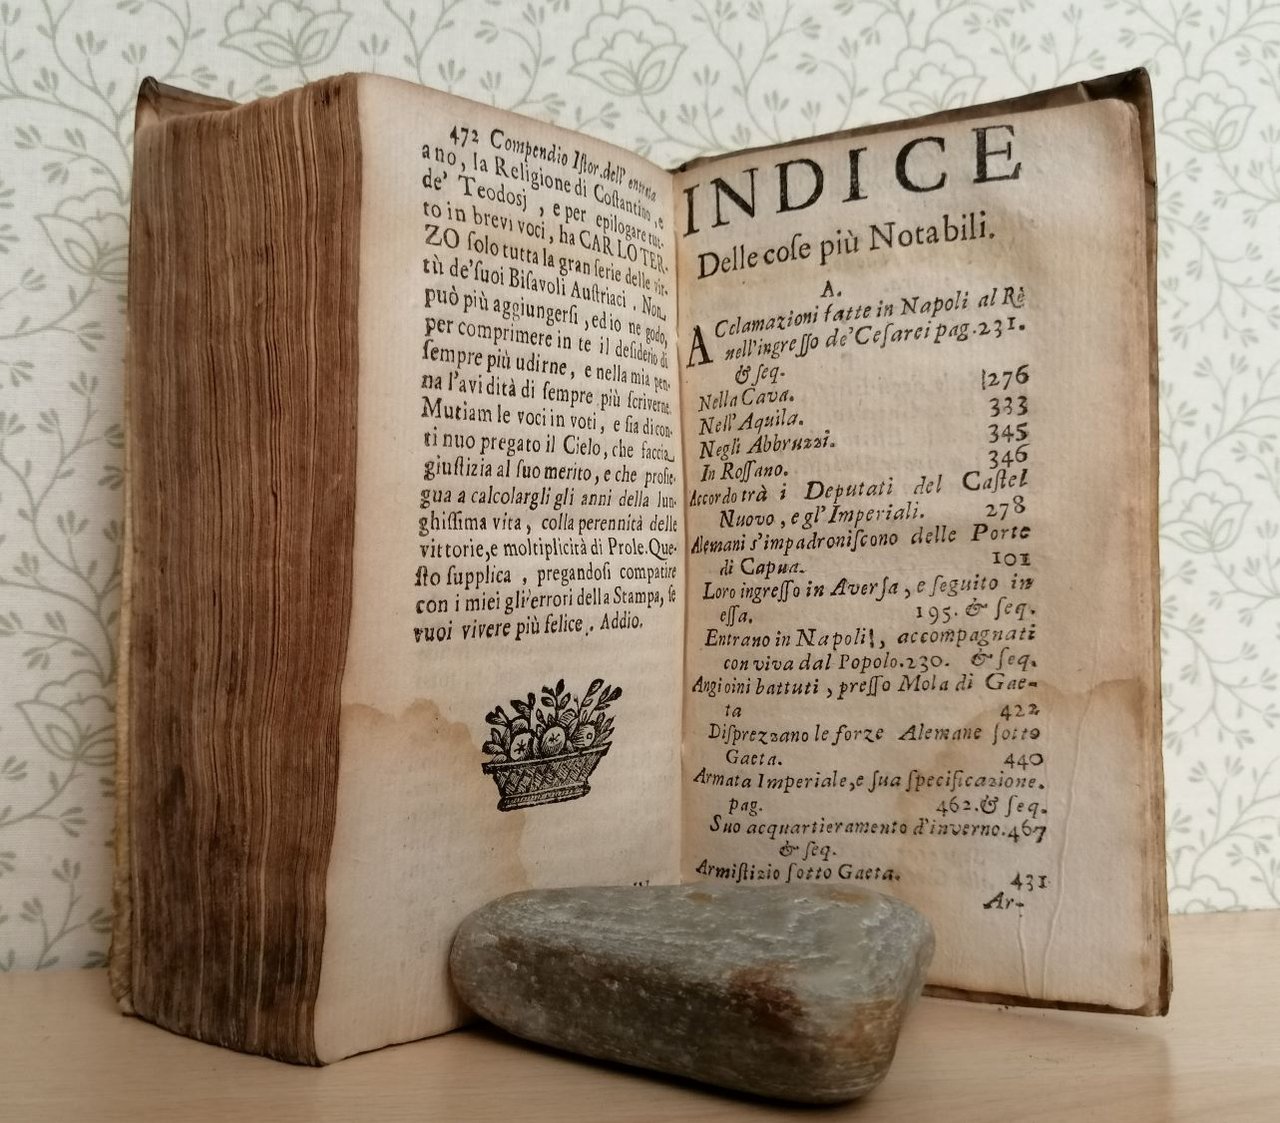 472 Compendio Iſtor. dell' entrata
ano, la Religione di Coſtantino, e
de' Teodosj, e per epilogare tut-
to in brevi voci, ha CARLO TER-
ZO ſolo tutta la gran ſerie delle vir-
tù de' ſuoi Biſavoli Auſtriaci. Non
può più aggiungerſi, ed io ne godo,
per comprimere in te il deſiderio di
ſempre più udirne, e nella mia pen-
na l'avidità di ſempre più ſcriverne.
Mutiam le voci in voti, e ſia di con-
tinuo pregato il Cielo, che faccia
giuſtizia al ſuo merito, e che proſie-
gua a calcolargli gli anni della lun-
ghiſſima vita, colla perennità delle
vittorie, e moltiplicità di Prole. Que-
ſto ſupplica, pregandoſi compatire
con i miei gli errori della Stampa, ſe
vuoi vivere più felice. Addio.
INDICE
Delle coſe più Notabili.
A.
ACclamazioni fatte in Napoli al Rè
nell'ingreſſo de' Ceſarei pag. 231.
& ſeq.
Nella Cava. 276
Nell'Aquila. 333
Negli Abbruzzi. 345
In Roſſano. 346
Accordo trà i Deputati del Caſtel
Nuovo, e gl'Imperiali. 278
Alemani s'impadroniſcono delle Porte
di Capua. 101
Loro ingreſſo in Averſa, e ſeguito in
eſſa. 195. & ſeq.
Entrano in Napoli, accompagnati
con viva dal Popolo. 230. & ſeq.
Angioini battuti, preſſo Mola di Gae-
ta 422
Diſprezzano le forze Alemane ſotto
Gaeta. 440
Armata Imperiale, e ſua ſpecificazione.
pag. 462. & ſeq.
Suo acquartieramento d'inverno. 467
& ſeq.
Armiſtizio ſotto Gaeta. 431
Ar-